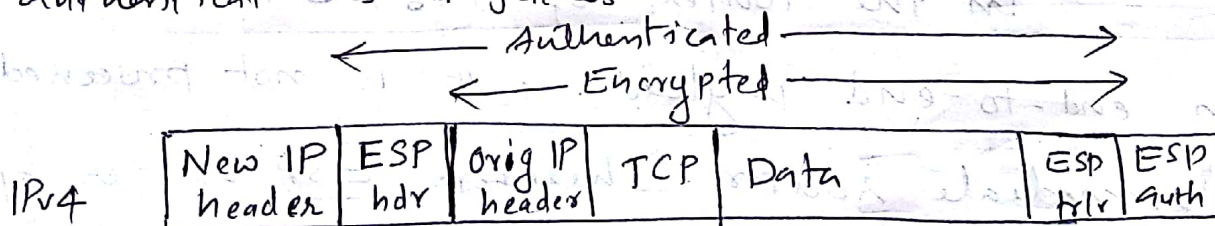 Authenticated
Encrypted
IPv4 New IP header ESP hdr Orig IP header TCP Data ESP trlr ESP auth